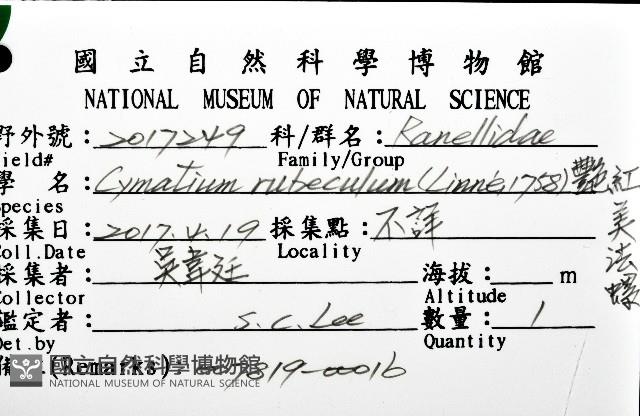 國立自然科學博物館
NATIONAL MUSEUM OF NATURAL SCIENCE
野外號：2017249 科/群名：Ranellidae
Field# Family/Group
學 名：Cymatium rubeculum (Linné, 1758) 艷紅美法螺
Species
採集日：2017.4.19 採集點：不詳
Coll.Date Locality
採集者：吳韋廷 海拔： m
Collector Altitude
鑑定者： S.C.Lee 數量：1
Det.by Quantity
備 (Remarks) 7819-00016
國立自然科學博物館
NATIONAL MUSEUM OF NATURAL SCIENCE